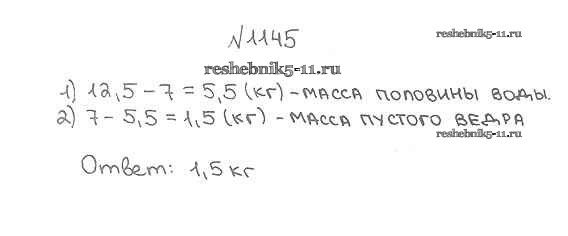 №1145
reshebnik5-11.ru
reshebnik5-11.ru
1) 12,5 - 7 = 5,5 (кг) - масса половины воды.
2) 7 - 5,5 = 1,5 (кг) - масса пустого ведра
reshebnik5-11.ru
Ответ: 1,5 кг